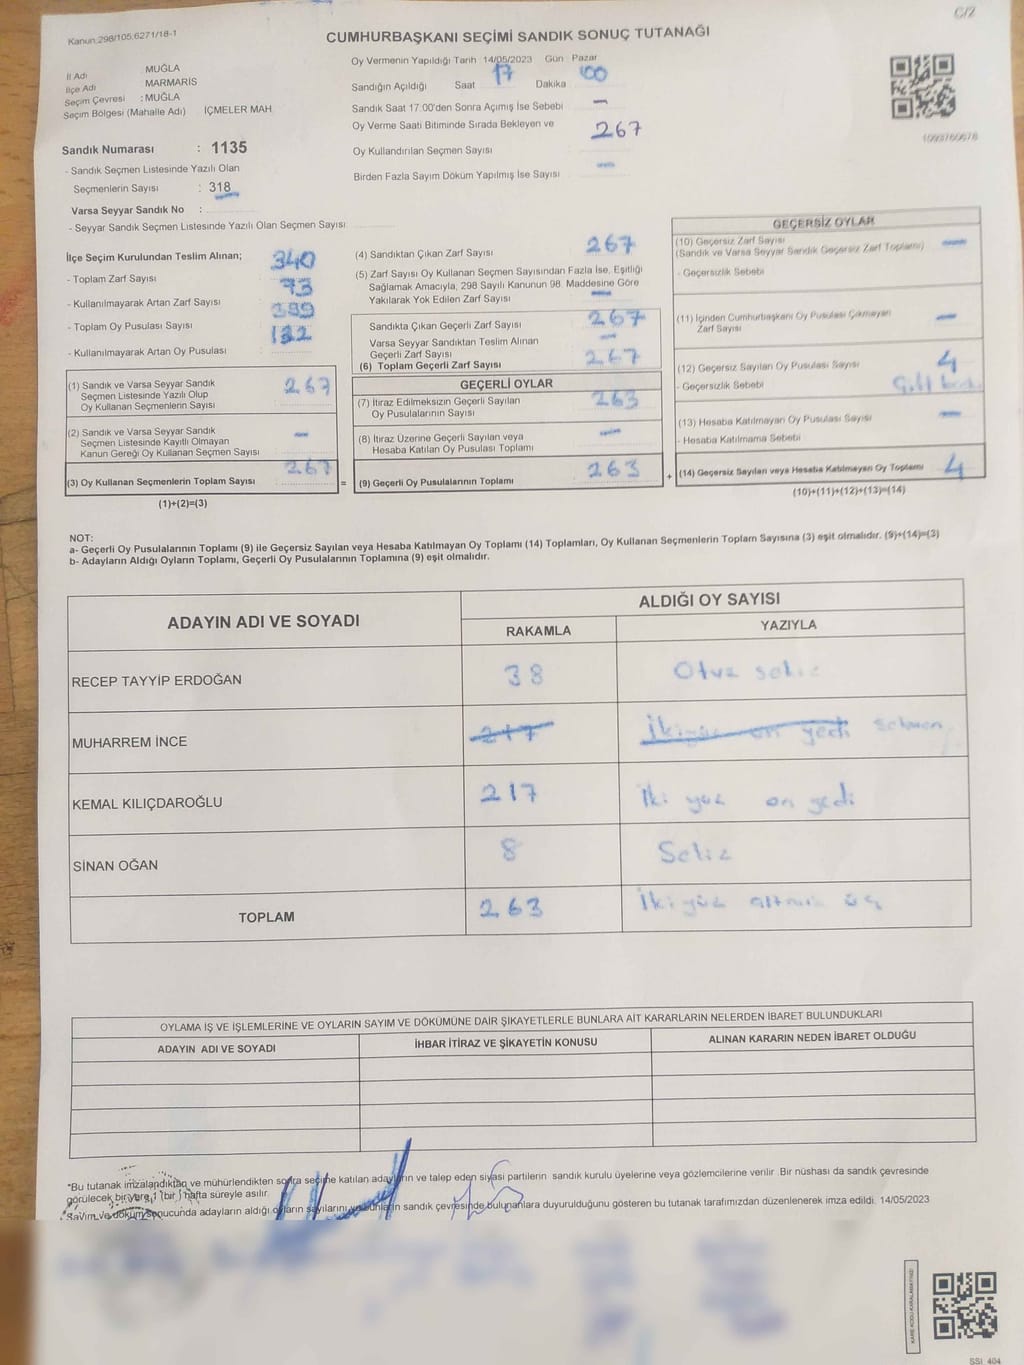 C/2
Kanun:298/105;6271/18-1
CUMHURBAŞKANI SEÇİMİ SANDIK SONUÇ TUTANAĞI
İl Adı MUĞLA
İlçe Adı MARMARİS
Seçim Çevresi : MUĞLA
Seçim Bölgesi (Mahalle Adı) İÇMELER MAH.
Sandık Numarası : 1135
- Sandık Seçmen Listesinde Yazılı Olan
Seçmenlerin Sayısı : 318
Varsa Seyyar Sandık No :
- Seyyar Sandık Seçmen Listesinde Yazılı Olan Seçmen Sayısı
Oy Vermenin Yapıldığı Tarih 14/05/2023 Gün Pazar
Sandığın Açıldığı Saat 17 Dakika 00
Sandık Saat 17.00'den Sonra Açımış İse Sebebi -
Oy Verme Saati Bitiminde Sırada Bekleyen ve
Oy Kullandırılan Seçmen Sayısı 267
Birden Fazla Sayım Döküm Yapılmış İse Sayısı -
1093760678
İlçe Seçim Kurulundan Teslim Alınan;
- Toplam Zarf Sayısı 340
- Kullanılmayarak Artan Zarf Sayısı 73
- Toplam Oy Pusulası Sayısı 399
- Kullanılmayarak Artan Oy Pusulası 132
(1) Sandık ve Varsa Seyyar Sandık
Seçmen Listesinde Yazılı Olup
Oy Kullanan Seçmenlerin Sayısı 267
(2) Sandık ve Varsa Seyyar Sandık
Seçmen Listesinde Kayıtlı Olmayan
Kanun Gereği Oy Kullanan Seçmen Sayısı -
(3) Oy Kullanan Seçmenlerin Toplam Sayısı 267
(1)+(2)=(3)
=
(4) Sandıktan Çıkan Zarf Sayısı 267
(5) Zarf Sayısı Oy Kullanan Seçmen Sayısından Fazla İse, Eşitliği
Sağlamak Amacıyla, 298 Sayılı Kanunun 98. Maddesine Göre
Yakılarak Yok Edilen Zarf Sayısı -
Sandıkta Çıkan Geçerli Zarf Sayısı 267
Varsa Seyyar Sandıktan Teslim Alınan
Geçerli Zarf Sayısı -
(6) Toplam Geçerli Zarf Sayısı 267
GEÇERLİ OYLAR
(7) İtiraz Edilmeksizin Geçerli Sayılan
Oy Pusulalarının Sayısı 263
(8) İtiraz Üzerine Geçerli Sayılan veya
Hesaba Katılan Oy Pusulası Toplamı -
(9) Geçerli Oy Pusulalarının Toplamı 263
+
GEÇERSİZ OYLAR
(10) Geçersiz Zarf Sayısı -
(Sandık ve Varsa Seyyar Sandık Geçersiz Zarf Toplamı)
- Geçersizlik Sebebi
(11) İçinden Cumhurbaşkanı Oy Pusulası Çıkmayan
Zarf Sayısı -
(12) Geçersiz Sayılan Oy Pusulası Sayısı 4
- Geçersizlik Sebebi
(13) Hesaba Katılmayan Oy Pusulası Sayısı -
- Hesaba Katılmama Sebebi
(14) Geçersiz Sayılan veya Hesaba Katılmayan Oy Toplamı 4
(10)+(11)+(12)+(13)=(14)
NOT:
a- Geçerli Oy Pusulalarının Toplamı (9) ile Geçersiz Sayılan veya Hesaba Katılmayan Oy Toplamı (14) Toplamları, Oy Kullanan Seçmenlerin Toplam Sayısına (3) eşit olmalıdır. (9)+(14)=(3)
b- Adayların Aldığı Oyların Toplamı, Geçerli Oy Pusulalarının Toplamına (9) eşit olmalıdır.
ADAYIN ADI VE SOYADI ALDIĞI OY SAYISI
RAKAMLA YAZIYLA
RECEP TAYYİP ERDOĞAN 38 Otuz sekiz
MUHARREM İNCE 217 İkiyüz on yedi
KEMAL KILIÇDAROĞLU 217 İki yüz on yedi
SİNAN OĞAN 8 Sekiz
TOPLAM 263 İkiyüz altmış üç
OYLAMA İŞ VE İŞLEMLERİNE VE OYLARIN SAYIM VE DÖKÜMÜNE DAİR ŞİKAYETLERLE BUNLARA AİT KARARLARIN NELERDEN İBARET BULUNDUKLARI
ADAYIN ADI VE SOYADI İHBAR İTİRAZ VE ŞİKAYETİN KONUSU ALINAN KARARIN NEDEN İBARET OLDUĞU
*Bu tutanak imzalandıktan ve mühürlendikten sonra seçime katılan adayların ve talep eden siyasi partilerin sandık kurulu üyelerine veya gözlemcilerine verilir. Bir nüshası da sandık çevresinde
görülecek bir yere 1 (bir) hafta süreyle asılır.
*Sayım ve döküm sonucunda adayların aldığı oyların sayılarını ve bunların sandık çevresinde bulunanlara duyurulduğunu gösteren bu tutanak tarafımızdan düzenlenerek imza edildi. 14/05/2023
KARE KODU KARALAMAYINIZ!
SSI 404